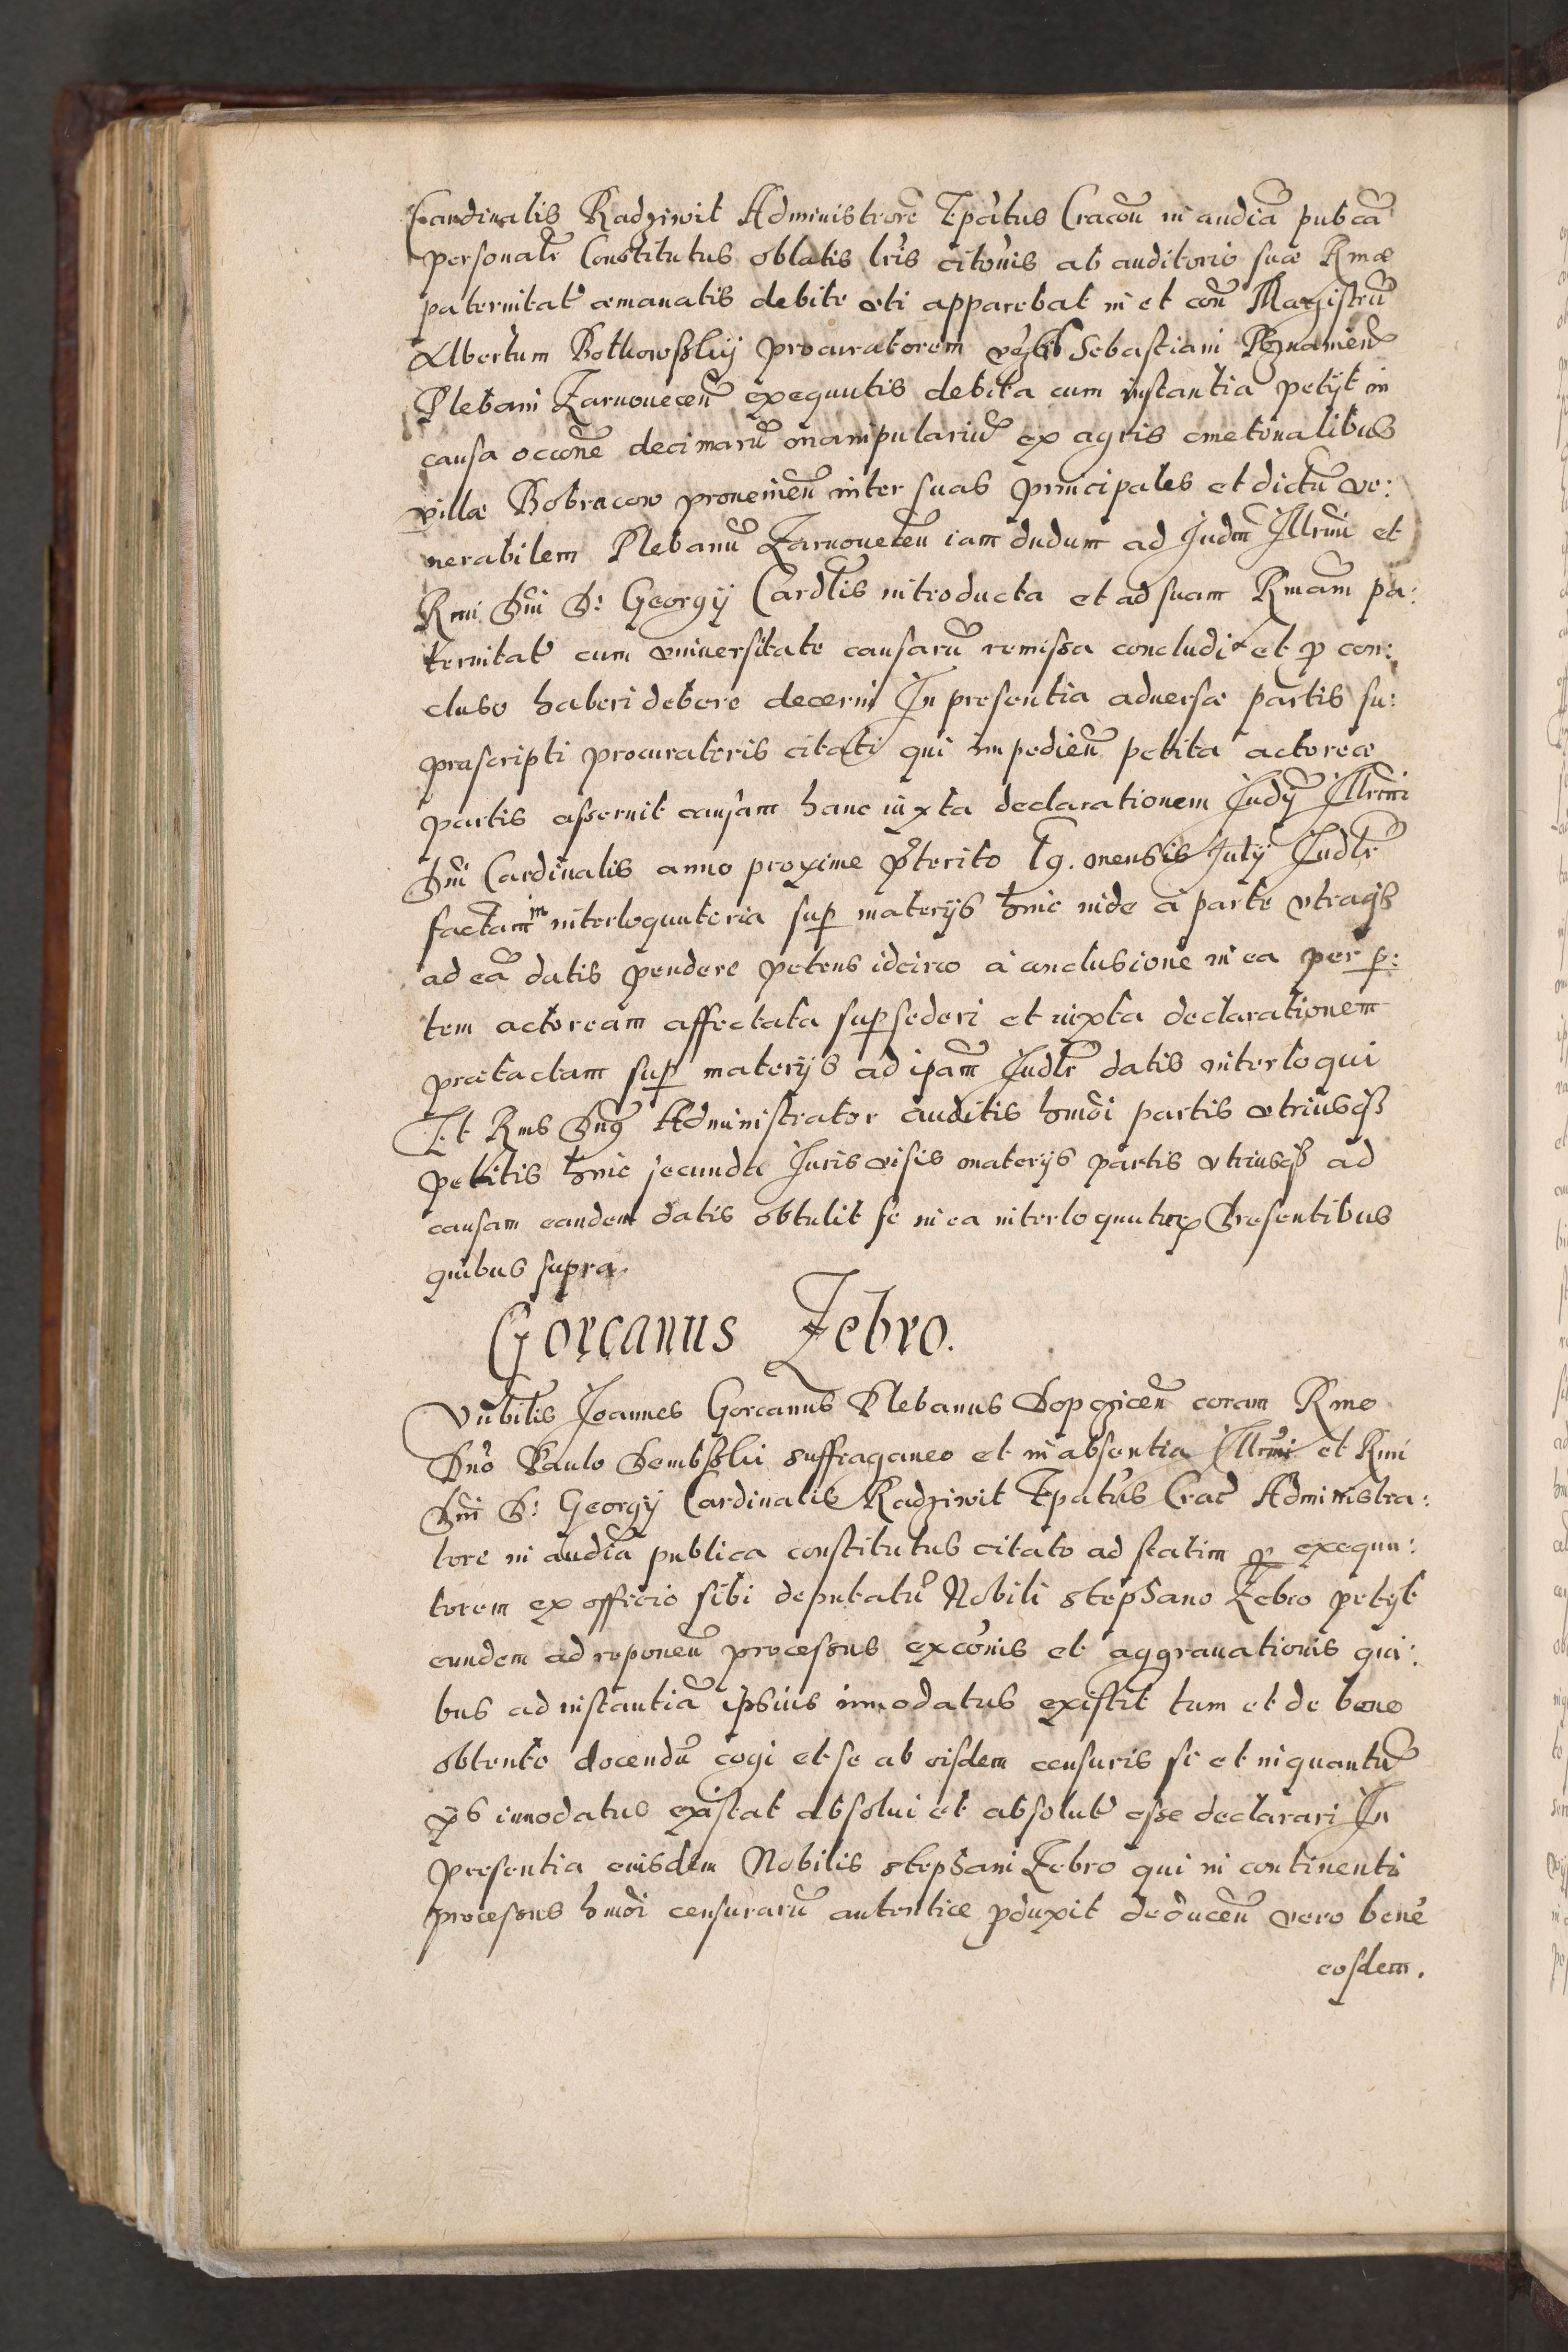 Cardinalis Radziwil Administrore Epātus Cracoū in audiā pubcā
personalr Constitutus oblatis lris citōnis ab auditorio suæ Rmæ
paternitat emanatis debite uti apparebat in et con Magistrū
Albertum Botkowsskij procuratorem Sebastiani Poznanien
Plebani Żarnovecen exequutis debita cum instantia petijt in
causa occone decimarū manipulariū ex agris cmetonalibus
villæ Bobracow provenien inter suas principales et dictū ve:
nerabilem Plebanū Żarnovecen iam dudum ad Judm Illrmi et
Rmi Dni D: Georgij Cardlis introducta et ad suam Rmam pa:
ternitat cum universitate causarū remissa concludi et p con:
cluso haberi debere decerni In presentia adversæ partis su:
prascripti procuratoris citati qui impedien petita actoreæ
partis asseruit causam hanc iuxta declarationem Judy Illrmi
Dni Cardinalis anno proxime pterito 19. mensis Julij Judlr
factam interloquutoria sup materijs hinc inde à parte utraqs
ad eā datis pendere petens idcirco à conclusione in ea per p:
tem actoream affectata supsederi et iuxta declarationem
prætactam sup materijs ad ipam Judlr datis interloqui
Et Rms Dng Administrator auditis hmoi partis utriusqs
petitis hinc secunda Juris visis materijs partis utriusqs ad
causam eandem datis obtulit se in ea interloquutur Presentibus
quibus supra.
Gorcanus Żebro.
Vnbilis Joannes Gorcanus Plebanus Dopczicen coram Rmo
Dno Paulo Dembsski suffraganeo et in absentia Illrmi et Rmi
Dni D: Georgij Cardinalis Radziwil Epatus Crac Administra:
tore in audia publica constitutus citato ad statim p exequu:
torem ex officio sibi deputatū Nobili Stephano Żebro petijt
eundem ad reponen processus excōnis et aggravationis qui:
bus ad instantiā ipsius innodatus existit tum et de bene
obtento docendū cogi et se ab eisdem censuris si et inquantū
ijs innodatus existat absolui et absolut esse declarari In
presentia eiusdem Nobilis Stephani Żebro qui in continenti
processus hmoi censurarū autentice pduxit deducen vero bene
eosdem.